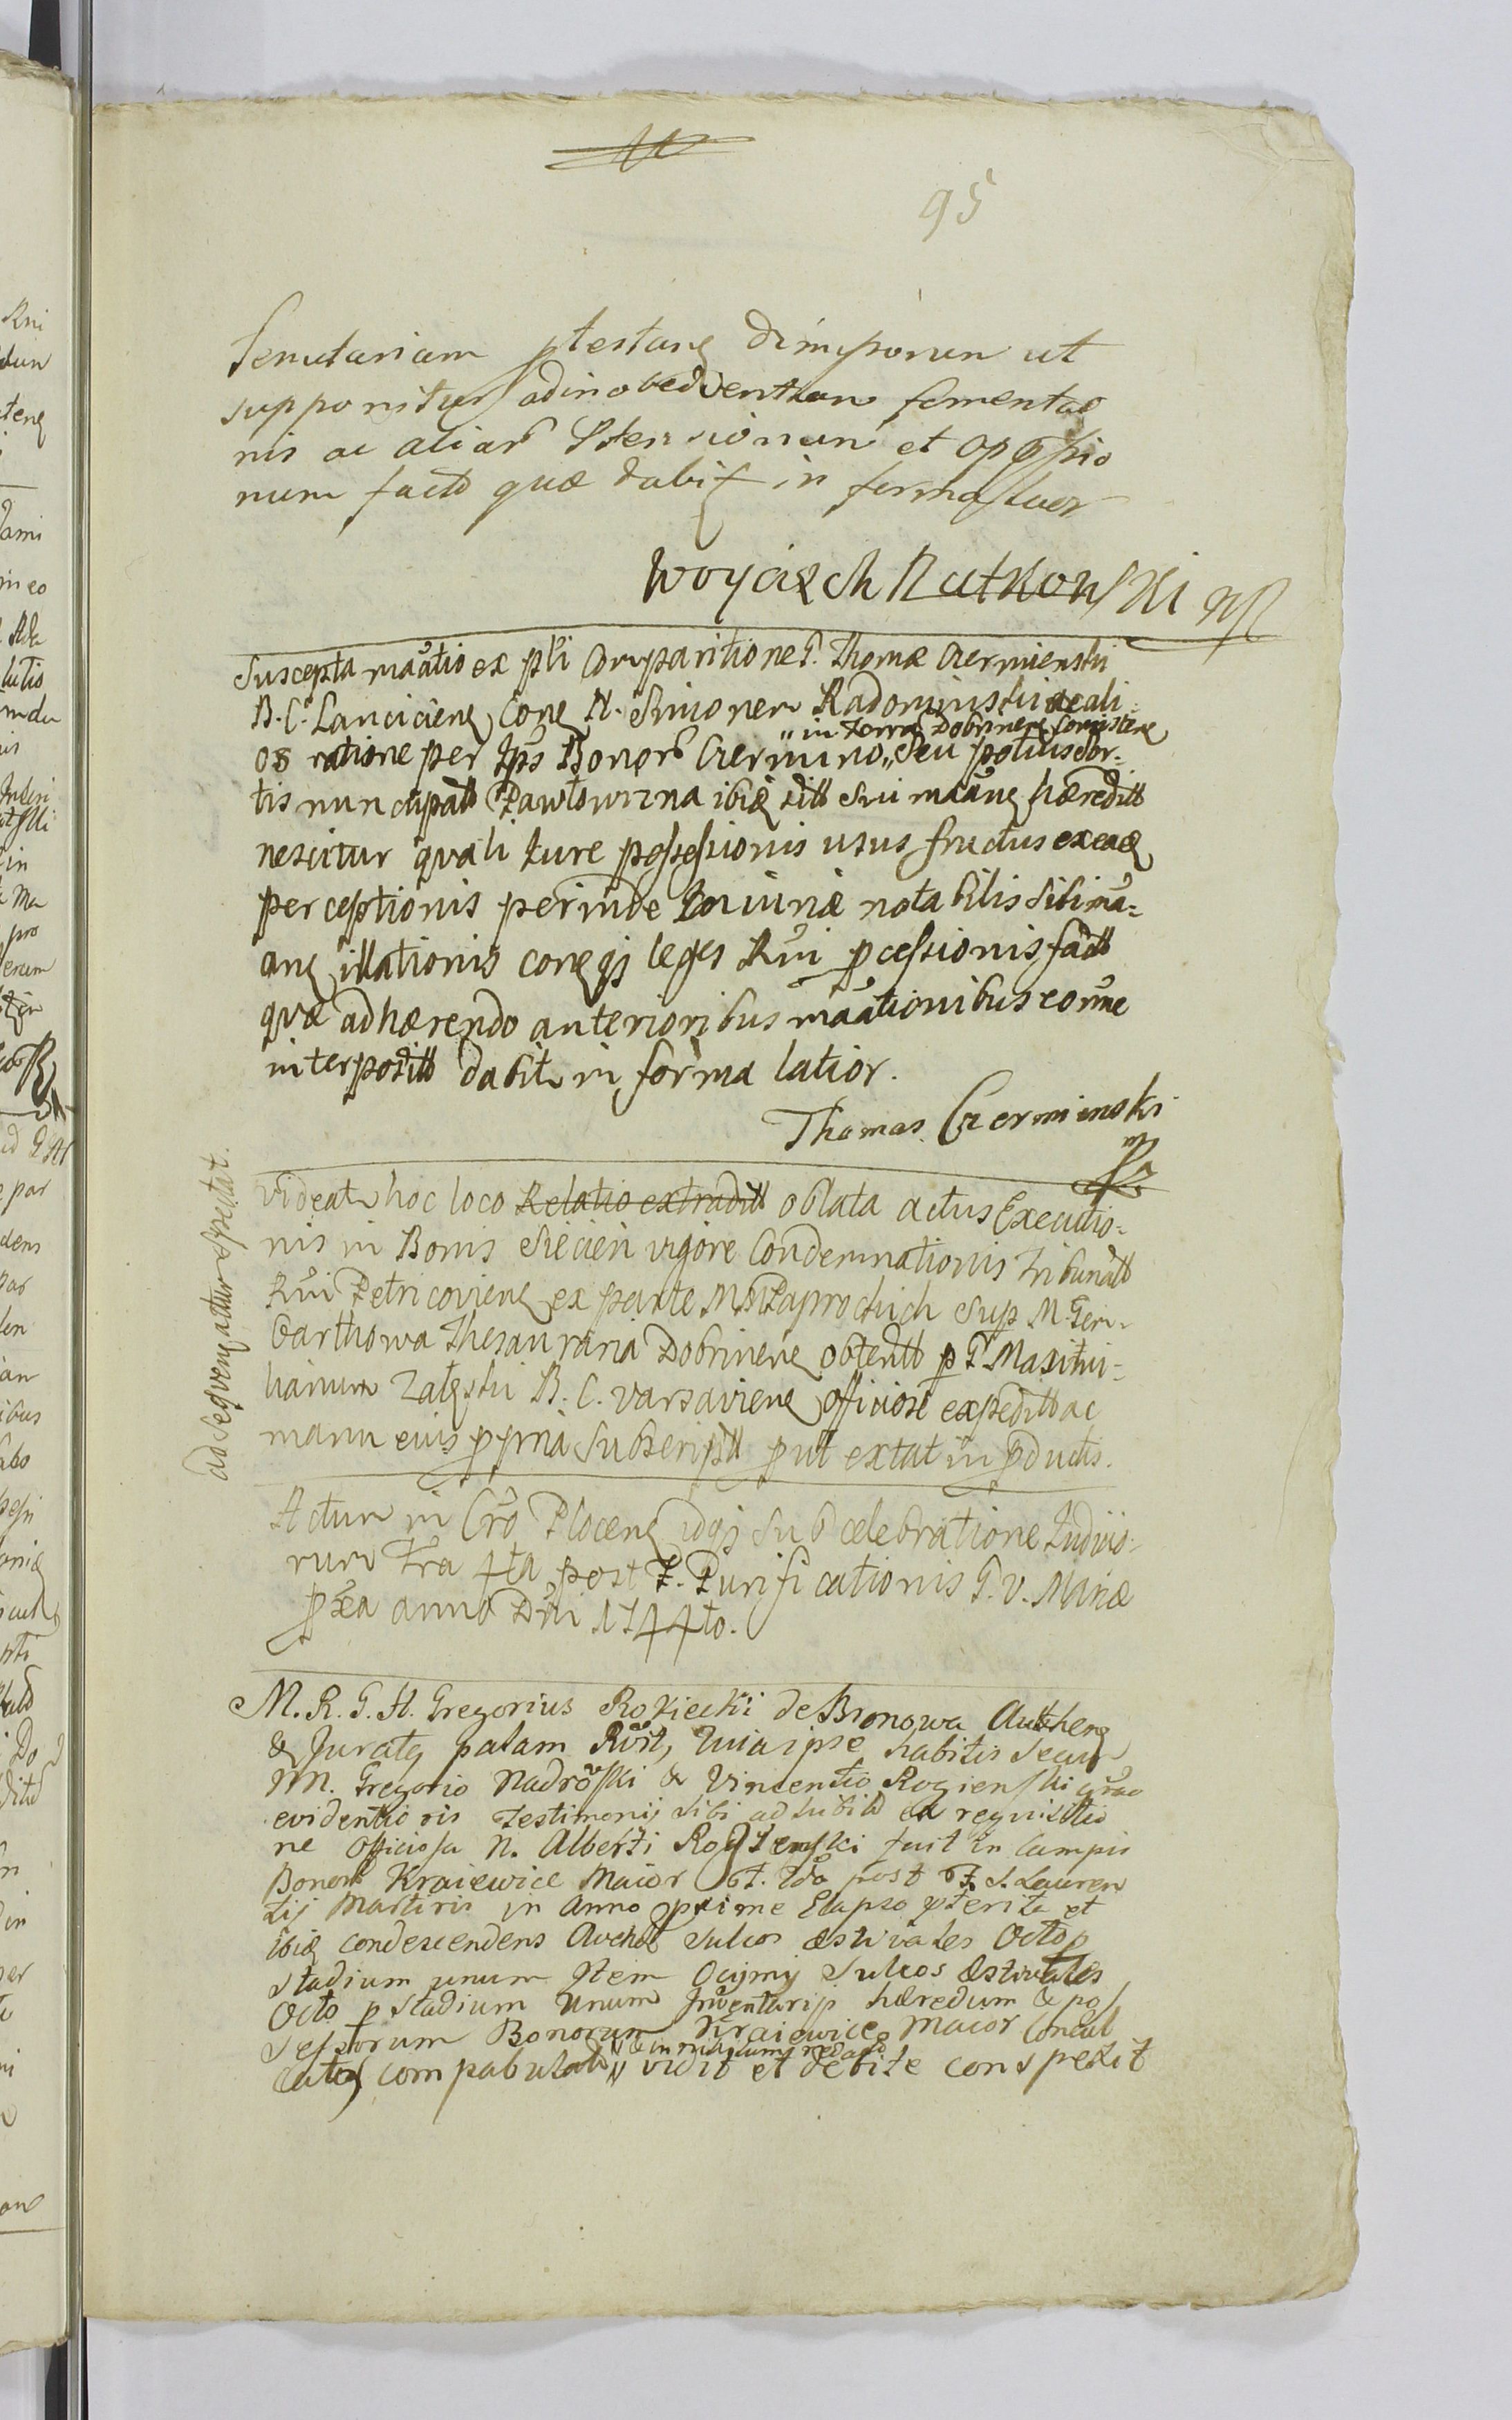 95
ptestang ut
supponitur ad inobedientiam fomentao
nis ac aliar et
num facto quæ dabit in forma
Woyciech Rutkowski mp
Suscepta maãtio ex pti Comparitione G. Thomæ Czermienski
B. C. Lanciciens Cong N. Simonem Radominski ac ali=
os ratione per Ips Bonor Czermino „ seu potius sor=
„ in Terra Dobrinens consistens
tis nuncupatt Pawłowizna ibiq sitt sui maãng hæreditt
nescitur quali Iure possessionis usus fructus exeaq
perceptionis perinde Iniuriæ notabilis sibi mã=
ang illationis cong qs leges Rni pcessionis fact
quæ adhærendo anterioribus maãtionibus eorme
interpositt dabit in forma latior.
Thomas Czermienski
mp
videat hoc loco Relatio extraditt oblata actus Executio=
nis in Bonis Siecien vigore Condemnationis Tribunatt
Rni Petricoviens ex parte MM Paprockich Sup M. Gen.
Carthowa Thesauraria Dobrinens obtentt p G. Maximi=
lianum Załęski B. C. Varsaviens officiose expeditt ac
manu eius ppria Subscriptt put extat in pductis.
ad Sequeng actus Spectat.
Actum in Cro Plocens idqs sub celebratione Iudicio=
rum Fra 4ta post F. Purificationis G. V. Mariæ
pxa anno Dni 1744to.
M. R. G. H. Gregorius Rokicki de Bronowa Authens
& Juratg palam Rõit, Quia ipse habitis secum
NN. Gregorio Nadrowski & Vincentio Rogienski
evidentioris Testimonij sibi adhibitt ex requisitio
ne Officiosa N. Alberti Rogienski fuit in Campis
Bonor Kraiewice Maior f. 2da post F. S. Lauren
tij Martiris in Anno pxime Elapso pterita et
ibiq condescendens Avenæ Sulcos æstivales Octo p
Stadium unum Item Ocymy Sulcos Æstivales
Octo p Stadium Unum Inventarijs hæredum & pos
sessorum Bonorum Kraiewice Maior Concul
catos compabulatos „ vidit et debite conspexit